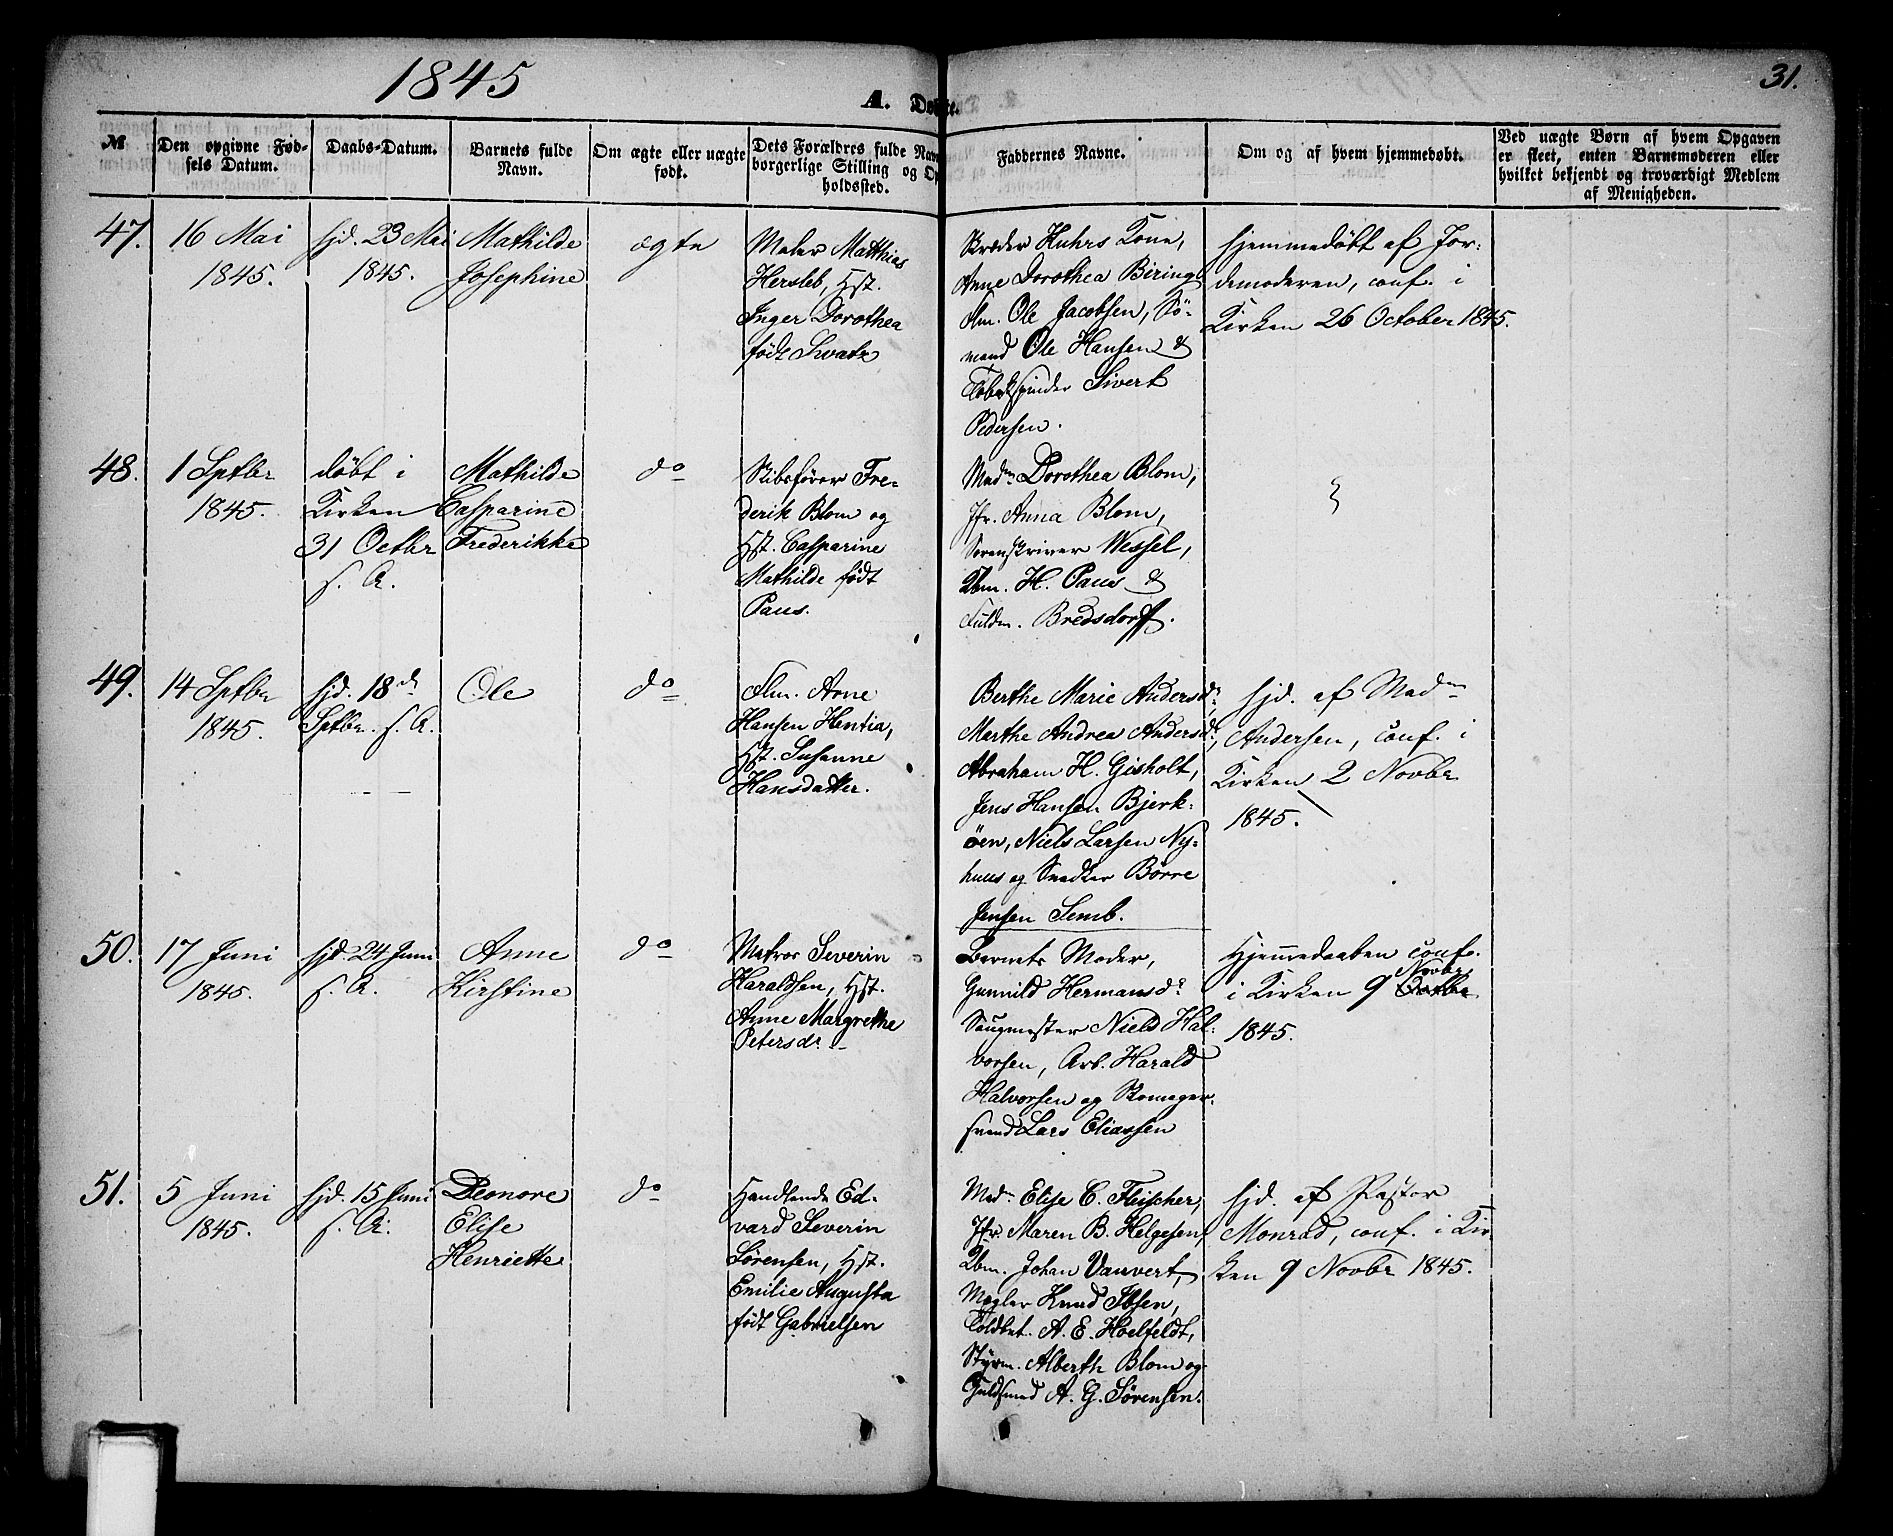 1845
A. Døbte.
31.
№
Den opgivne Fød-
sels Datum.
Daabs-Datum.
Barnets fulde
Navn.
Om ægte eller uægte
født.
Dets Forældres fulde Navn
borgerlige Stilling og Op
holdssted.
Faddernes Navne.
Om og af hvem hjemmedøbt.
Ved uægte Børn af hvem Opgaven
er skeet, enten Barnemoderen eller
hvilket bekjendt og troværdigt Medlem
af Menigheden.
47.
16 Mai
1845.
hjd. 23 Mai
1845.
Mathilde
Josephine
ægte
Maler Matthias
Hersleb, Hst.
Inger Dorothea
født Svatz
Skræder Kuhrs Kone,
Anne Dorothea Biring
Slm. Ole Jacobsen, Sø-
mand Ole Hansen &
Tobakspinder Sivert
Pedersen.
hjemmedøbt af Jor-
demoderen, conf. i
Kirken 26 October 1845.
48.
1 Septbr
1845.
døbt i
Kirken
31 Octbr
s. A.
Mathilde
Casparine
Frederikke
do
Skibsfører Fre-
derik Blom og
Hst. Casparine
Mathilde født
Paus.
Madm Dorothea Blom,
Jfr. Anna Blom,
Sorenskriver Wessel,
Kbm. H. Paus &
Fuldm. Bredsdorff.
49.
14 Septbr
1845.
hjd. 18de
Septbr. s. A.
Ole
do
Slm. Arne
Hansen Hentia,
Hst. Susanne
Hansdatter.
Berthe Marie Andersdr,
Marthe Andrea Andersdr,
Abraham H. Gisholt,
Jens Hansen Bjerk-
øen, Niels Larsen Ny-
huus og Snedker Børre
Jensen Semb.
hjd. af Madm
Andersen, conf. i
Kirken 2 Novbr
1845.
50.
17 Juni
1845.
hjd. 24 Juni
s. A.
Anne
Kirstine
do
Matros Severin
Haraldsen, Hst.
Anne Margrethe
Petersdr
Barnets Moder,
Gunnild Hermansdr
Saugmester Niels Hal-
vorsen, Arb. Harald
Halvorsen og Skomager-
svend Lars Eliassen
Hjemmedaaben conf.
i Kirken 9 Octbr Novbr
1845.
51.
5 Juni
1845.
hjd. 15 Juni
s. A.
Leonore
Elise
Henriette
do
Handlende Ed-
vard Severin
Sørensen, Hst.
Emilie Augusta
født Gabrielsen
Madm Elise C. Fleischer,
Jfr. Maren B. Helgesen,
Kbm. Johan Vauvert,
Mægler Knud Ibsen,
Toldbet. A. E. Hoelfeldt,
Styrm. Alberth Blom og
Guldsmed A. G. Sørensen.
hjd. af Pastor
Monrad, conf. i Kir-
ken 9 Novbr 1845.